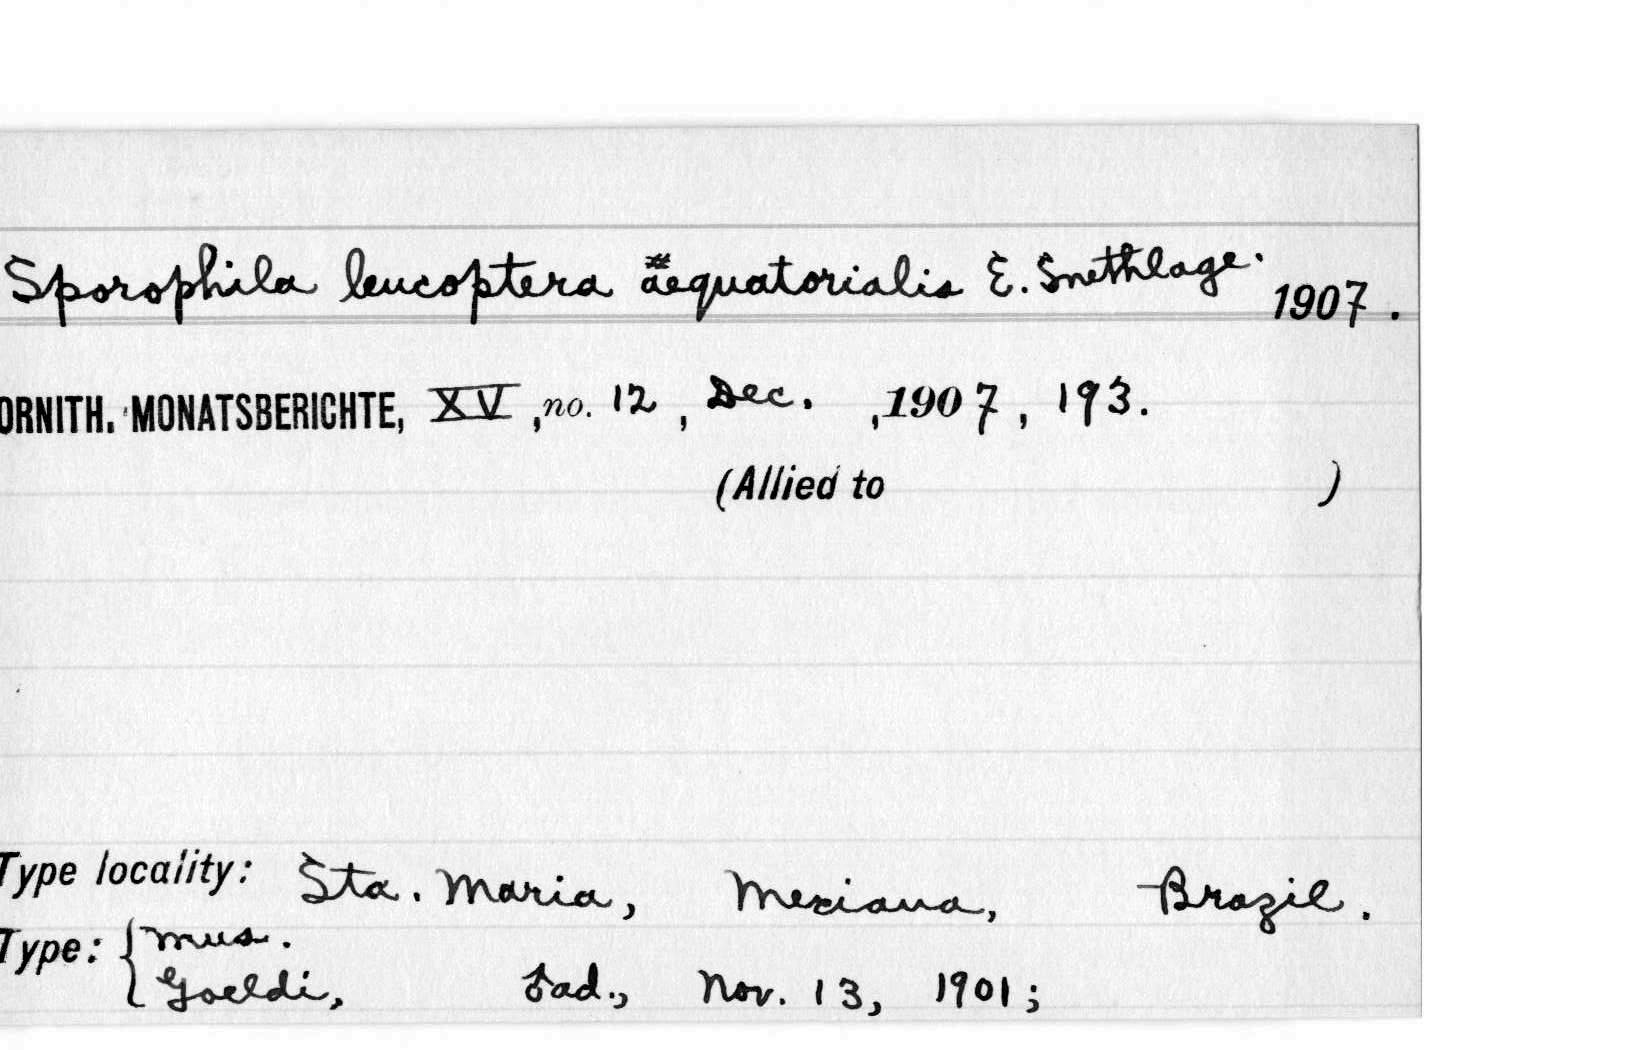 Sporophila leucoptera äequatorialis E. Snethlage. 1907.
ORNITH. MONATSBERICHTE, XV, no. 12, Dec. , 1907, 193.
(Allied to )
Type locality: Sta. Maria, Mexiana, Brazil.
Type: { Mus.
Goeldi, ♂ ad., Nov. 13, 1901;